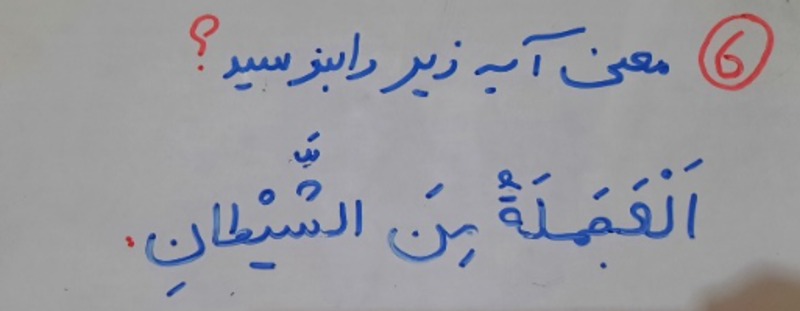 6 معنی آیه زیر را بنویسید؟
اَلْعَجَلَةُ مِنَ الشَّیْطانِ.